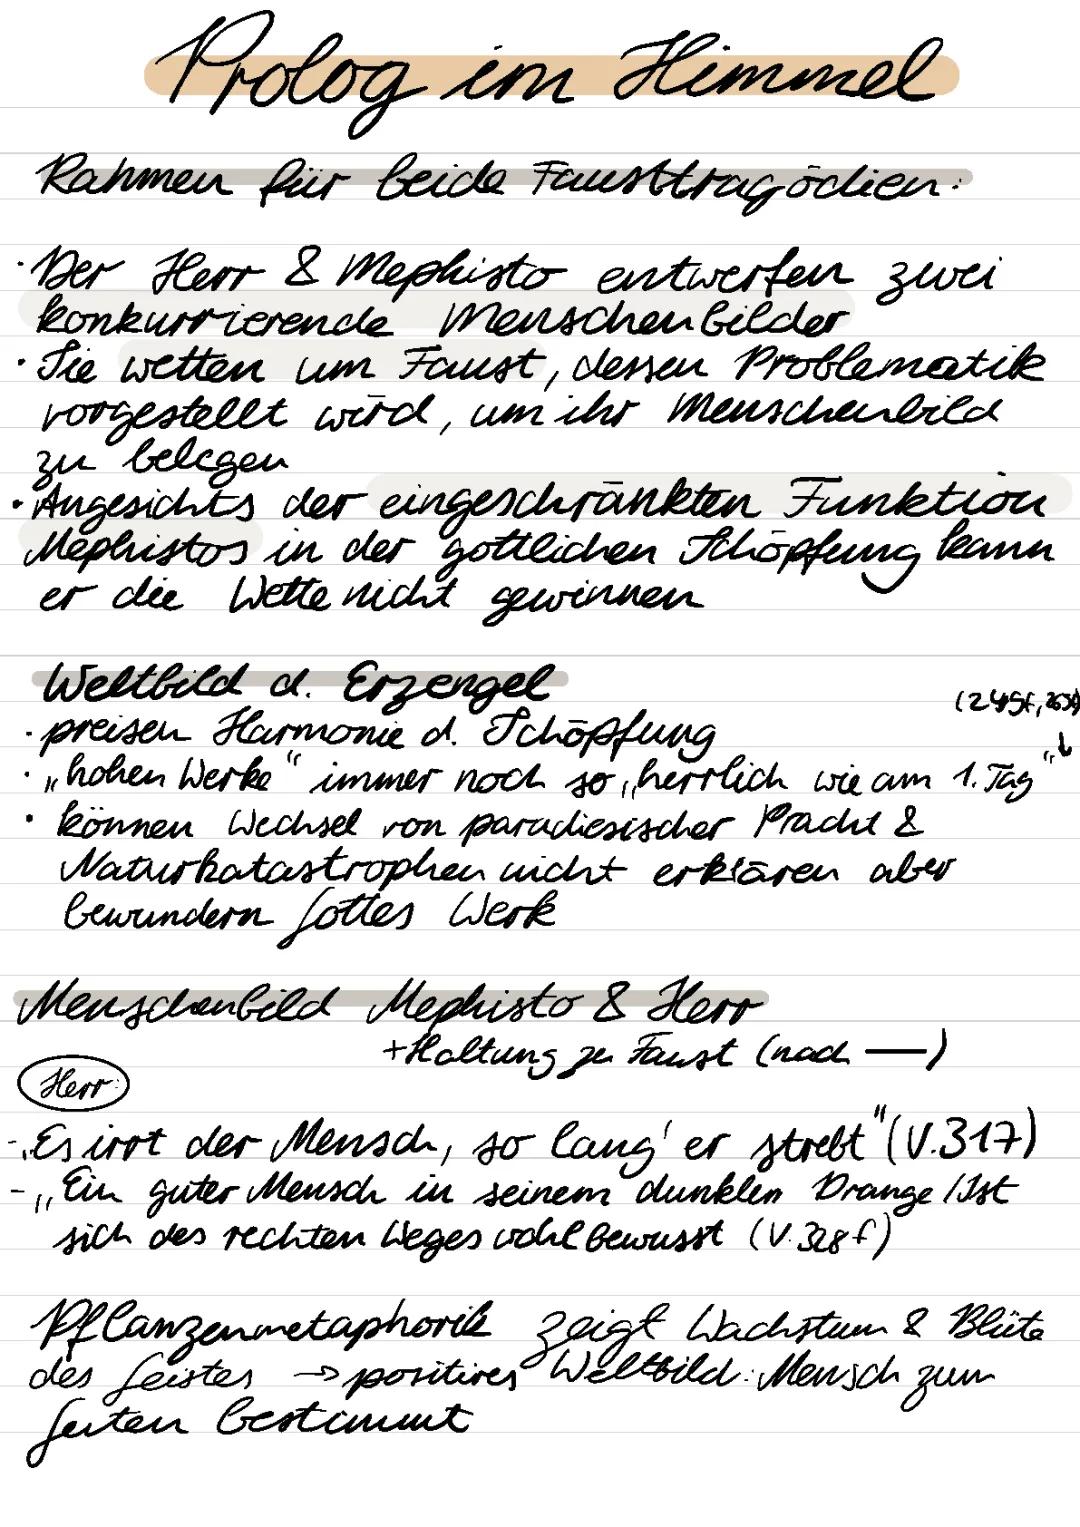 Prolog im Himmel
Rahmen für beide Fausttragödien:
· Der Herr & Mephisto entwerfen zwei
konkurrierende Menschenbilder
· Sie wetten um Faust, dessen Problematik
vorgestellt wird, um ihr Menschenbild
zu belegen
· Angesichts der eingeschränkten Funktion
Mephistos in der göttlichen Schöpfung kann
er die Wette nicht gewinnen
Weltbild d. Erzengel
· preisen Harmonie d. Schöpfung
(249f,
· „hohen Werke" immer noch so „herrlich wie am 1. Tag" ↓
· können Wechsel von paradiesischer Pracht &
Naturkatastrophen nicht erklären aber
bewundern Gottes Werk
Menschenbild Mephisto & Herr
+Haltung zu Faust (nach —)
Herr:
- „Es irrt der Mensch, so lang' er strebt" (V.317)
- „Ein guter Mensch in seinem dunklen Drange / Ist
sich des rechten Weges wohl bewusst (V. 328f)
Pflanzenmetaphorik zeigt Wachstum & Blüte
des Geistes → positives Weltbild: Mensch zum
Guten bestimmt